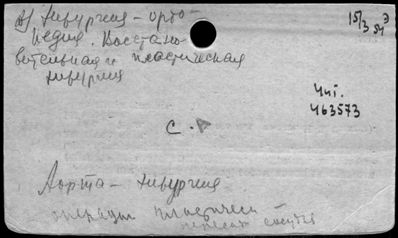 а) Хирургия – орто-
педия. Восстано-
вительная и пластическая
хирургия
15/3 54 э
Чит.
463573
с.
Аорта – хирургия
операции пластически
пересад. сосудов